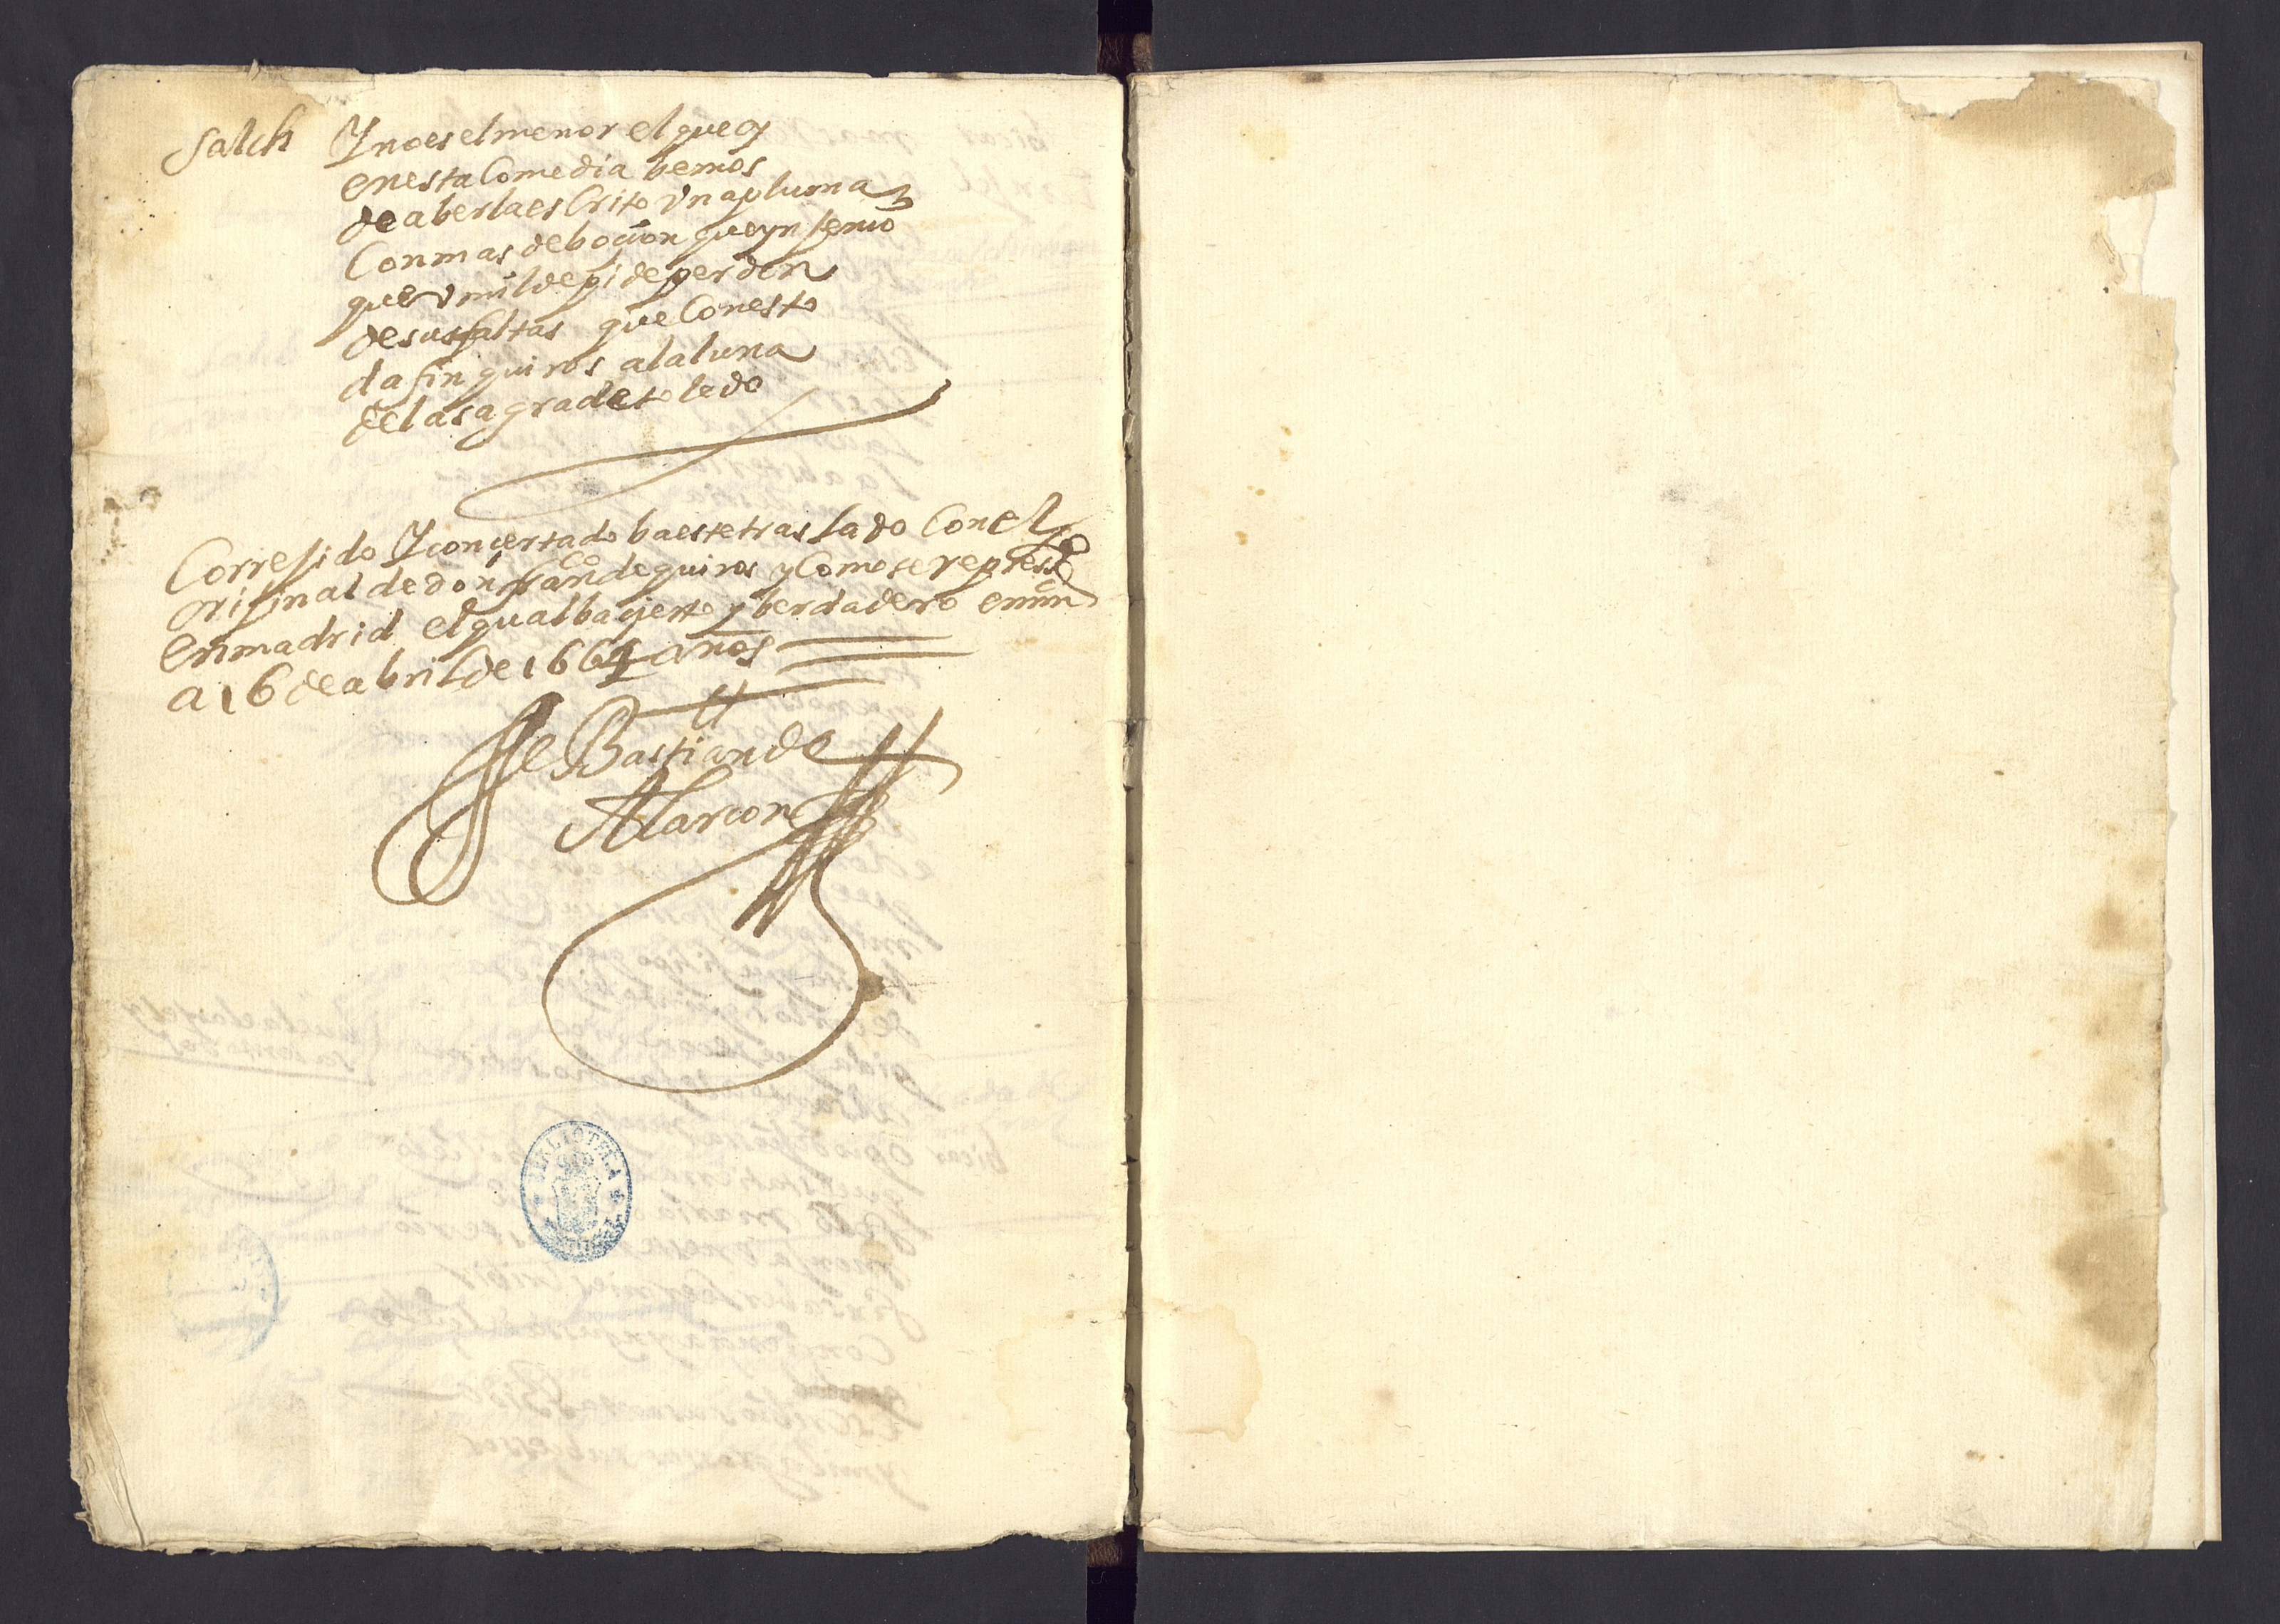 Salch Y no es el menor el que oy
en esta Comedia bemos
de aberla esCrito vna pluma
Con mas deboçion que ynjenio
que vmilde pide perdon
de sus faltas que Con esto
da fin quiros a la luna
de la sagra de toledo
Correjido Y conçertado ba este traslado Con el
orijinal de don franco de quiros y Como se represto
en madrid el qual ba çierto y berdadero en mn
a 16 de abril de 1664 años
Se Bastian de
Alarcon
BIBLIOTECA